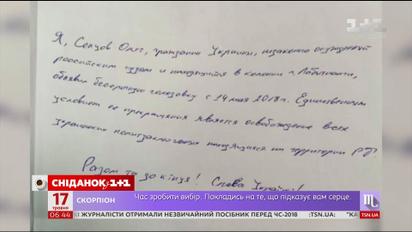 Я, Сенцов Олег, гражданин Украины, незаконно осужденный
российским судом и находящийся в колонии г. Лабытнанги,
объявил бессрочную голодовку с 14 мая 2018г. Единственным
условием ее прекращения является освобождение всех
украинских политзаключенных находящихся на территории РФ.
Разом та до кінця! Слава Україні!
СНІДАНОК 1+1
17 ТРАВНЯ
СКОРПІОН
Час зробити вибір. Покладись на те, що підказує вам серце.
06:44
ЖУРНАЛІСТИ ОТРИМАЛИ НЕЗВИЧАЙНИЙ ПОСІБНИК ПЕРЕД ЧС-2018 В РОСІЇ